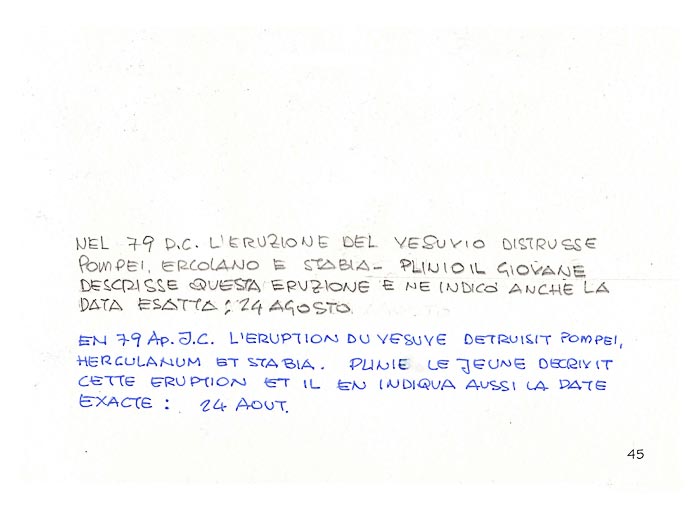 NEL 79 D.C. L'ERUZIONE DEL VESUVIO DISTRUSSE
POMPEI, ERCOLANO E STABIA- PLINIO IL GIOVANE
DESCRISSE QUESTA ERUZIONE E NE INDICO' ANCHE LA
DATA ESATTA: 24 AGOSTO.
EN 79 AP. J.C. L'ERUPTION DU VESUVE DETRUISIT POMPEI,
HERCULANUM ET STABIA. PLINIE LE JEUNE DECRIVIT
CETTE ERUPTION ET IL EN INDIQUA AUSSI LA DATE
EXACTE: 24 AOUT.
45